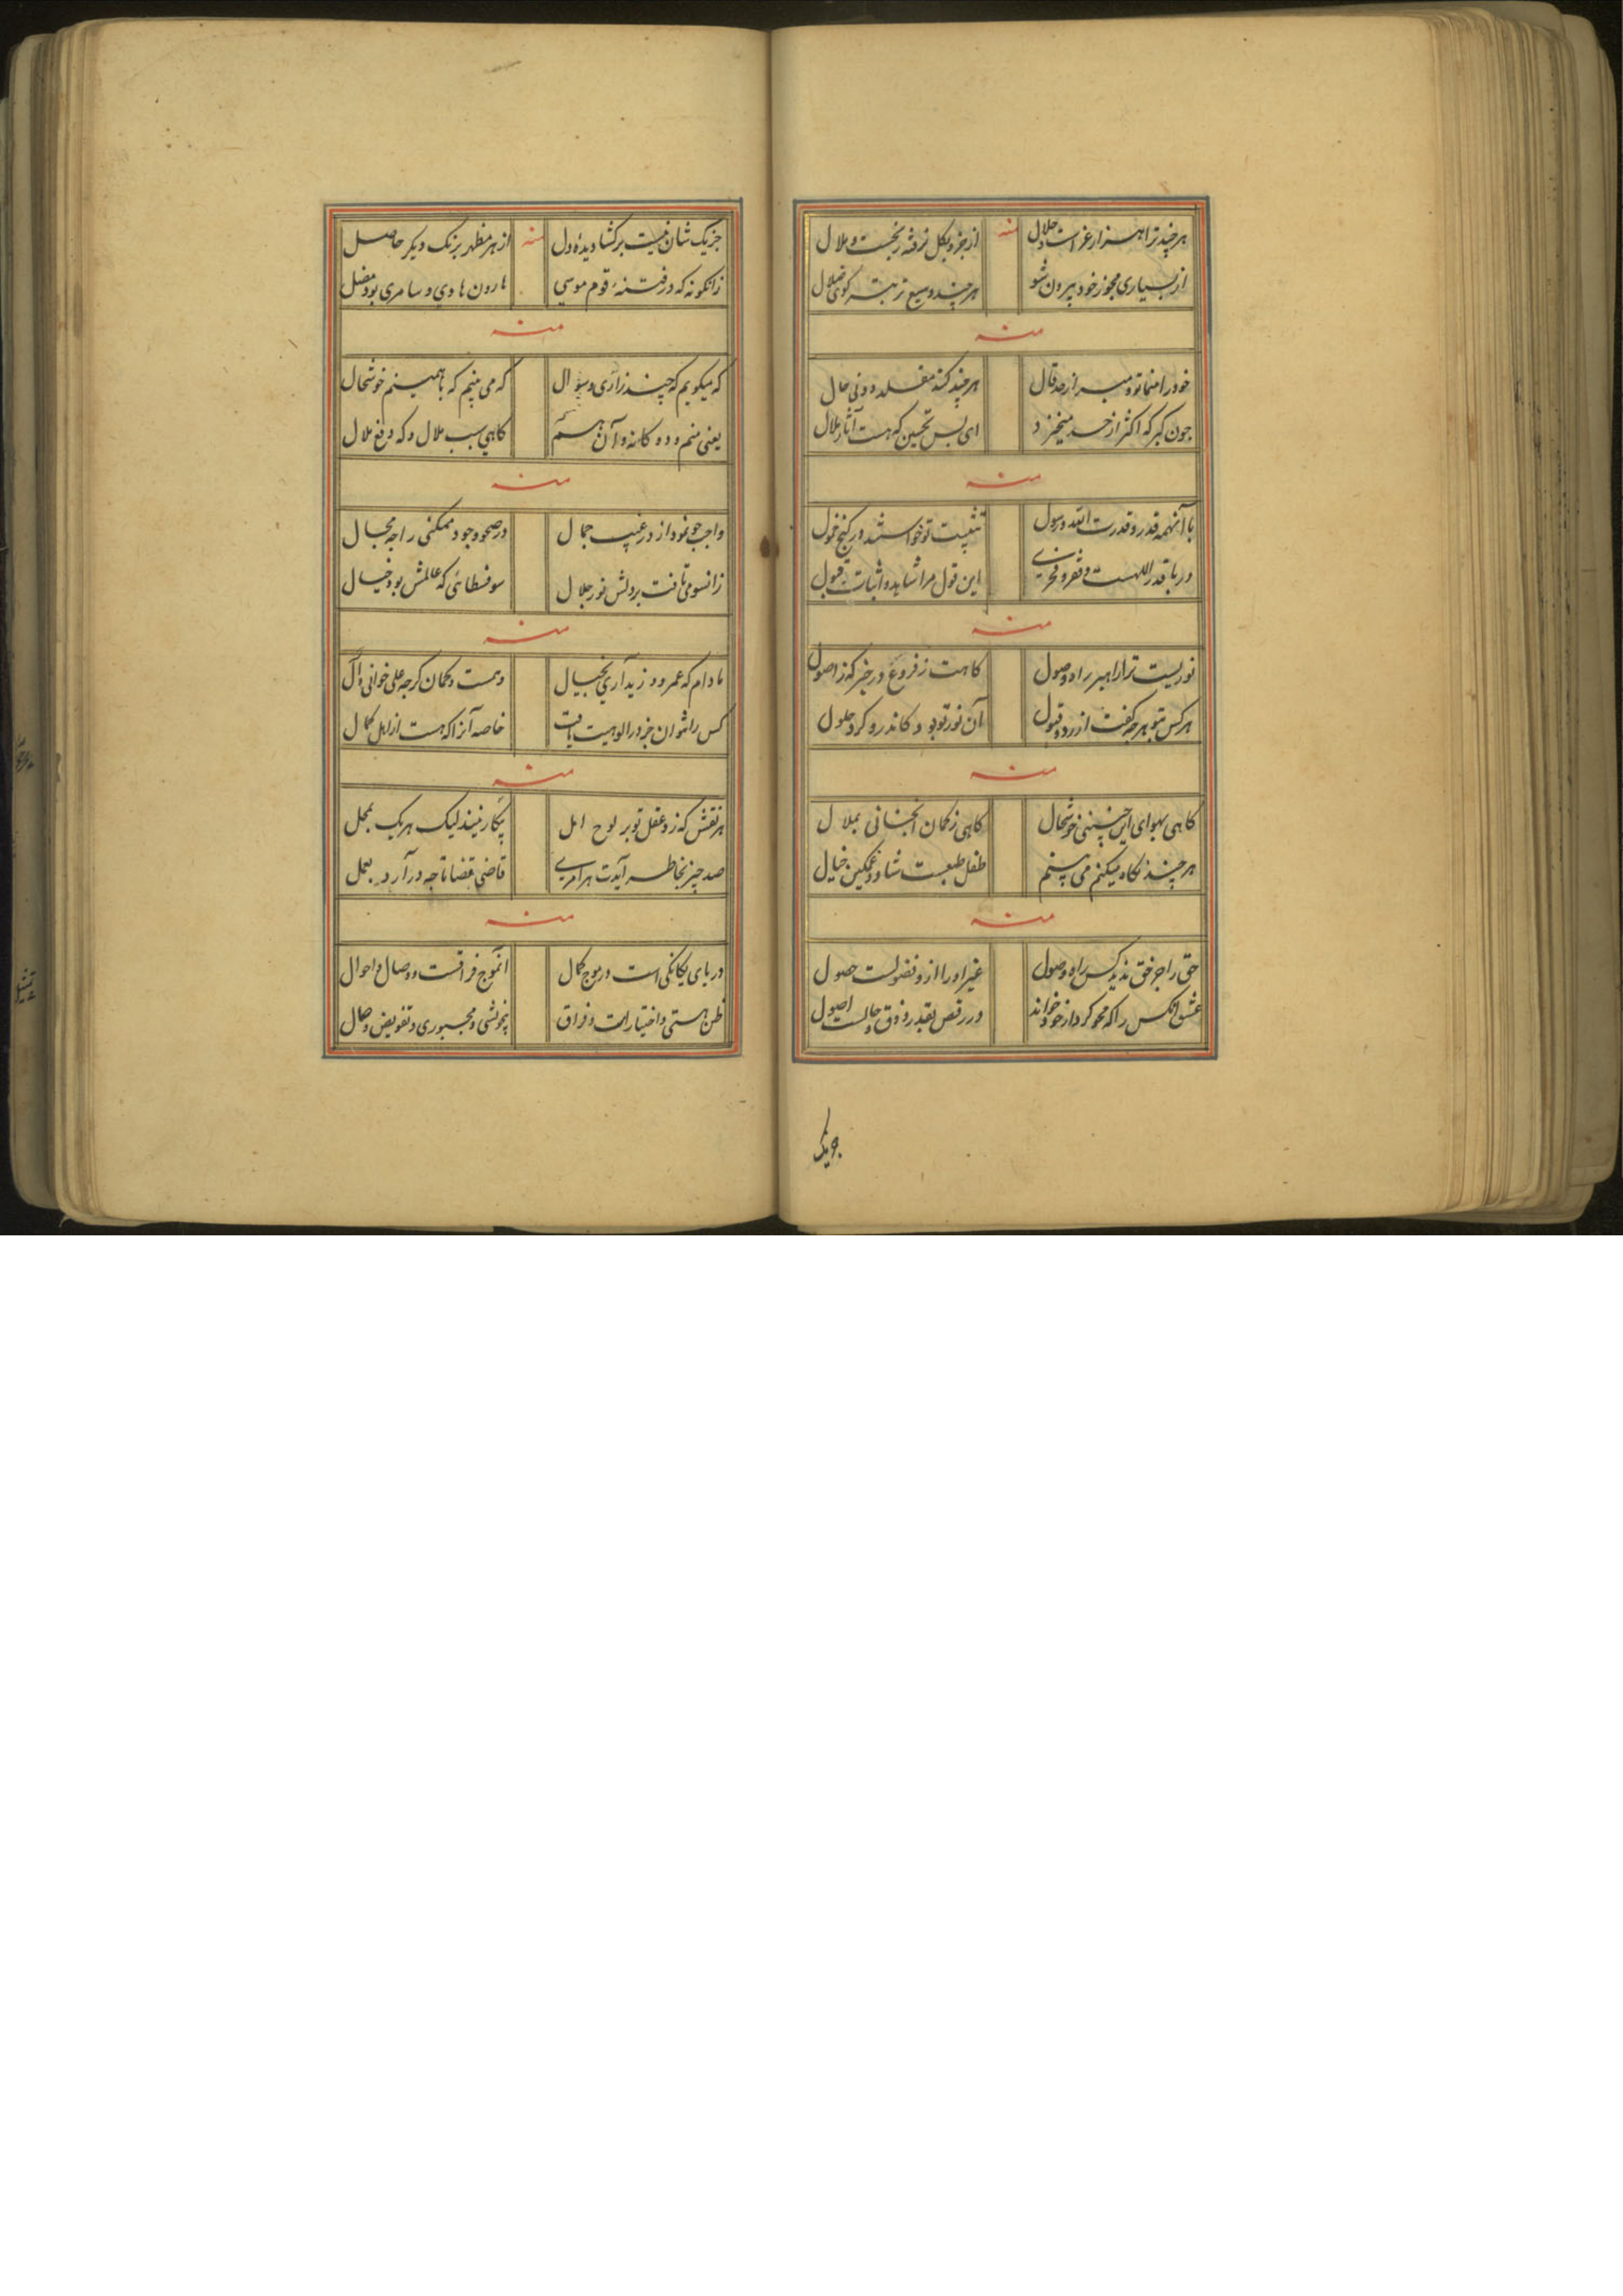 هر چند ترا هزار عز است و جلال منه از جزو بکل نرفته رنجست و ملال
از بسیاری مجوز خود بیرون شو هر چند وسیع تر بتر کوی ضلال
منه
خود را منما تو دم مزن از حد قال هر چند کند مقلد دونی حال
چون کبر که اکثر از حسد میخیزد ای بس تحسین که هست آثار ملال
منه
با آنهمه قدر و قدرت الله و رسول تثبیت تو خواستند در کنج خمول
دریا قدر اللهست و فقر و فخری این قول مرا شاهد و اثبات قبول
منه
نوریست ترا راهبر راه وصول کاهت ز فروغ در خبر که ز اصول
هر کس بتو هر چه گفت از رد و قبول آن نور تو بود کاندرو کرد حلول
منه
کاهی بهوای این چنینی خوشحال کاهی ز کمان آنچنانی بملال
هر چند نکاه میکنم می بینم طفل طبعست شاد و غمکین خیال
منه
حق را جز حق ندید کس راه وصول غیر او را ازو فضولست حصول
عشق آنکس را که محو کرد از خود خواند در رقص بقدر ذوق و حالست اصول
جز یک
جز یک شان نیست بر کشا دیده دل منه از هر مظهر برنک دیکر حاصل
زانکونه که در فتنه قوم موسی هارون هادی و سامری بود مضل
منه
که میکویم که چند زاری و سؤال که می بینم که با همینم خوشحال
یعنی منم و ده کانه و آن هستم کاهی سبب ملال و که دفع ملال
منه
واجب چو نمود از در غیب جمال در صحو وجود ممکنی را چه مجال
زانسو می تافت بر دلش نور جلال سوفسطائی که عالمش بود خیال
منه
مادام که عمرو و زید آری بخیال وهمست و کمان کر چه علی خوانی و آل
کس را نتوان جز در الوهیت یافت خاصه آنرا که هست از اهل کمال
منه
هر نقش که زد عقل تو بر لوح امل بیکار نیند لیک هر یک بمحل
صد چیز بخاطر آیدت هر امری قاضی قضا تا چه در آرد بعمل
منه
دریای یکانکی است در موج کمال انموج فراقست و وصال و احوال
ظن هستی و اختیارات فراق بیخویشی و مجبوری و تفویض وصال